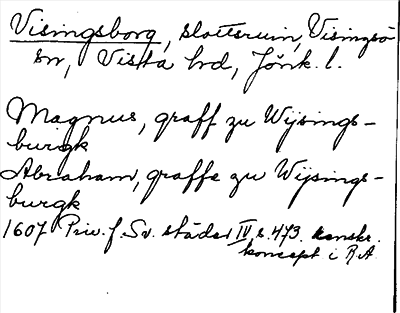 Visingsborg, slottsruin, Visingsö
sn, Vista hd, Jönk. l.
Magnus, graff zu Wijsings-
burgk
Abraham, graffe zu Wijsings-
burgk
1607 Priv. f. Sv. städer IV s. 473. kanskr.
koncept i R.A.